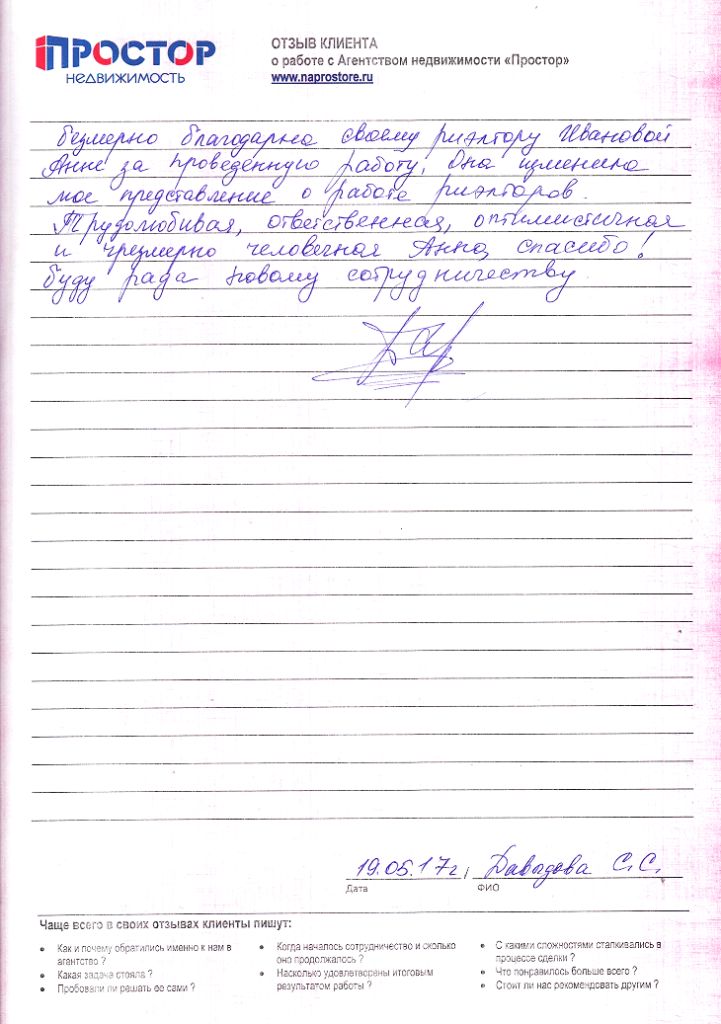 ПРОСТОР
НЕДВИЖИМОСТЬ
ОТЗЫВ КЛИЕНТА
о работе с Агентством недвижимости «Простор»
www.naprostore.ru
Безмерно благодарна своему риэлтору Ивановой
Анне за проведенную работу. Она изменила
мое представление о работе риэлторов.
Трудолюбивая, ответственная, оптимистичная
и чрезмерно человечная Анна, спасибо!
Буду рада новому сотрудничеству.
19.05.17г, Давыдова С.С.
Дата ФИО
Чаще всего в своих отзывах клиенты пишут:
• Как и почему обратились именно к нам в
агентство ?
• Какая задача стояла ?
• Пробовали ли решать ее сами ?
• Когда началось сотрудничество и сколько
оно продолжалось ?
• Насколько удовлетворены итоговым
результатом работы ?
• С какими сложностями сталкивались в
процессе сделки ?
• Что понравилось больше всего ?
• Стоит ли нас рекомендовать другим ?